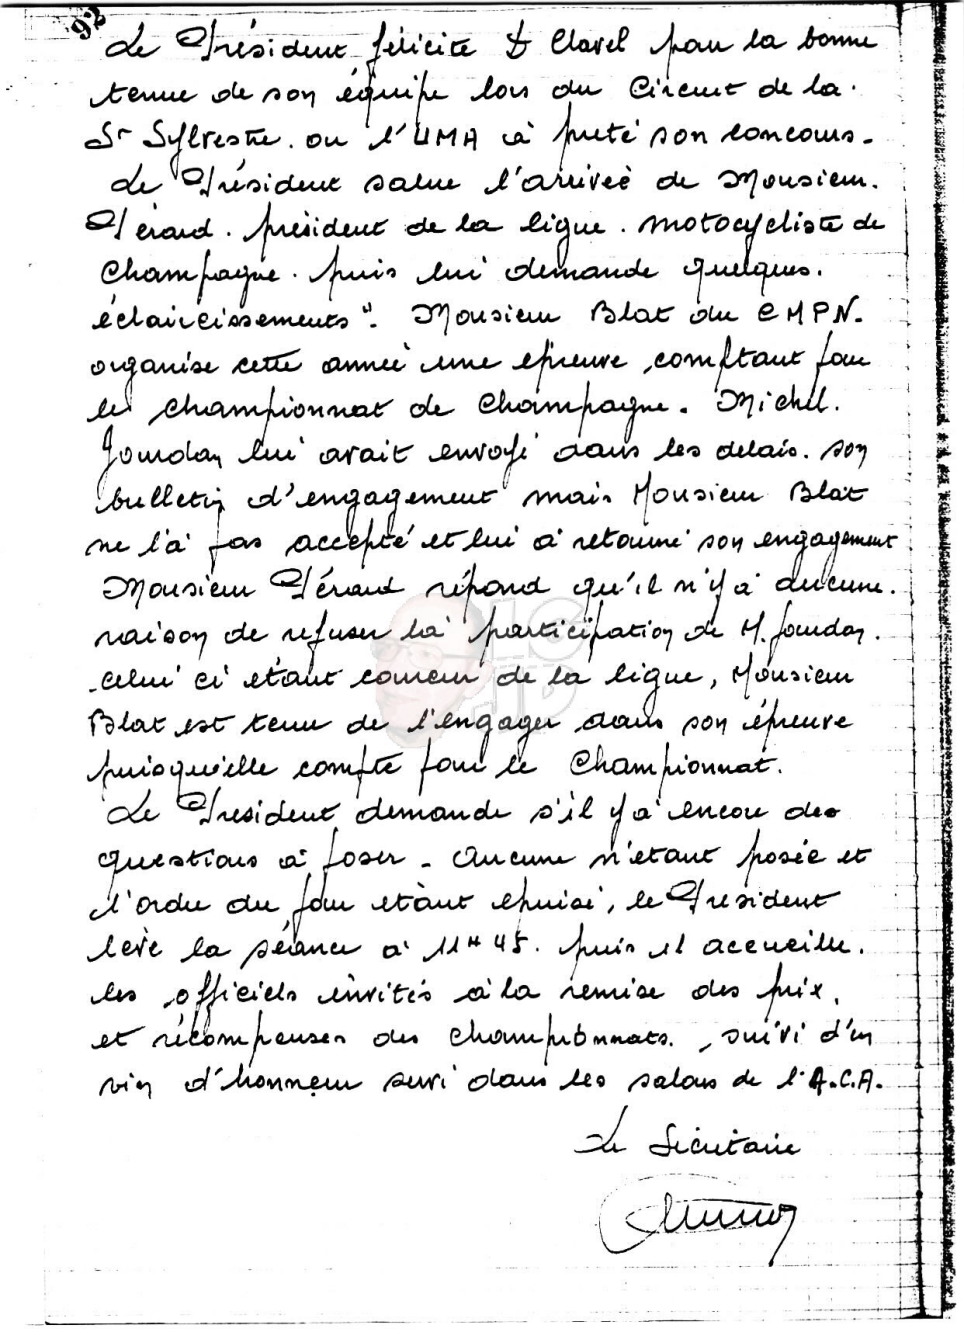 92
Le Président félicite D Clavel pour la bonne
tenue de son équipe lors du Circuit de la.
St Sylvestre. ou l'UMA à prété son concours.
Le Président salue l'arrivée de Monsieur.
Pérard. président de la ligue. motocycliste de
Champagne. puis lui demande quelques.
éclaircissements". Monsieur Blat du CMPN.
organise cette année une épreuve comptant pour
le championnat de Champagne. Michel.
Jourdan lui avait envoyé dans les delais. son
bulletin d'engagement mais Monsieur Blat
ne l'à pas accepté et lui à retourné son engagement
Monsieur Pérard répond qu'il n'y à aucune.
raison de refuser la participation de M. Jourdan.
celui ci étant coureur de la ligue, Monsieur
Blat est tenu de l'engager dans son épreuve
puisqu'elle compte pour le Championnat.
Le President demande s'il y à encore des
questions à poser - Aucune n'étant posée et
l'ordre du jour étant épuisé, le President
lève la séance à 11H45. puis il accueille.
les officiels invités à la remise des prix,
et récompenses des championnats. , suivi d'un
vin d'honneur servi dans les salons de l'A.C.A.
Le Sécretaire